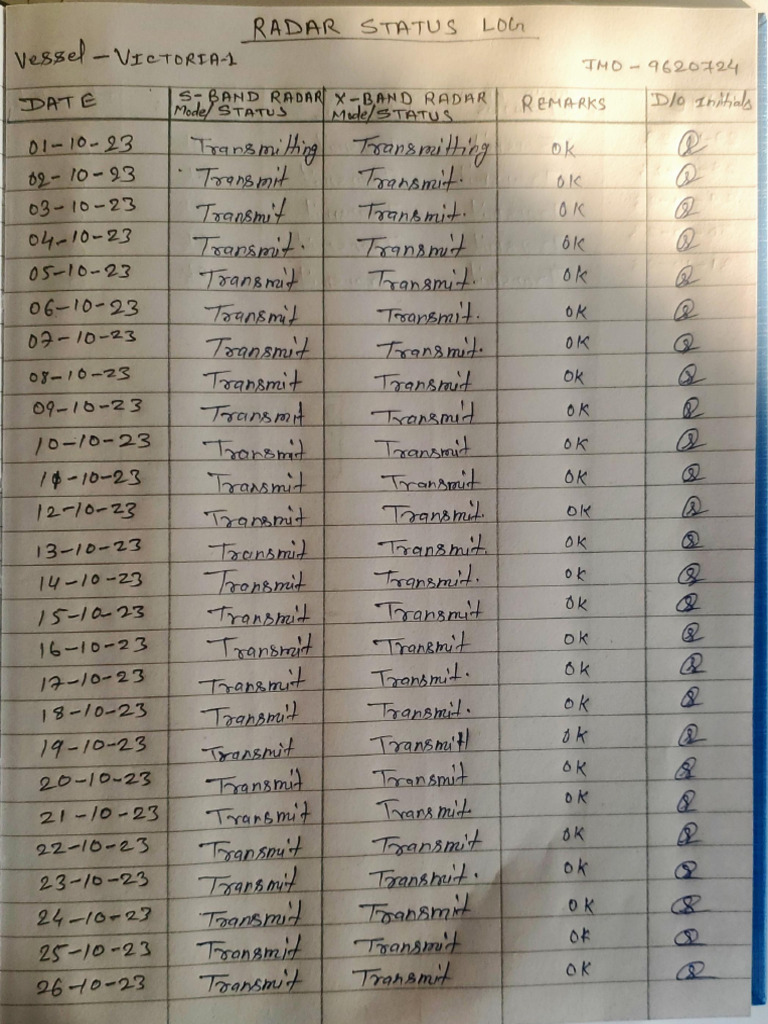 RADAR STATUS LOG
Vessel - VICTORIA-1 IMO - 9620724
DATE S-BAND RADAR Mode/STATUS X-BAND RADAR Mode/STATUS REMARKS D/O Initials
01-10-23 Transmitting Transmitting OK
02-10-23 Transmit Transmit. OK
03-10-23 Transmit Transmit. OK
04-10-23 Transmit. Transmit OK
05-10-23 Transmit Transmit. OK
06-10-23 Transmit Transmit. OK
07-10-23 Transmit Transmit. OK
08-10-23 Transmit Transmit OK
09-10-23 Transmit Transmit OK
10-10-23 Transmit Transmit OK
11-10-23 Transmit Transmit OK
12-10-23 Transmit Transmit. OK
13-10-23 Transmit Transmit. OK
14-10-23 Transmit Transmit. OK
15-10-23 Transmit Transmit OK
16-10-23 Transmit Transmit OK
17-10-23 Transmit Transmit. OK
18-10-23 Transmit Transmit. OK
19-10-23 Transmit Transmit OK
20-10-23 Transmit Transmit OK
21-10-23 Transmit Transmit. OK
22-10-23 Transmit Transmit OK
23-10-23 Transmit Transmit. OK
24-10-23 Transmit Transmit OK
25-10-23 Transmit Transmit OK
26-10-23 Transmit Transmit OK